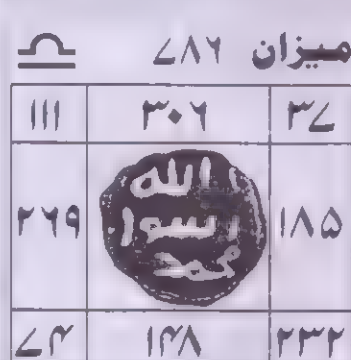 میزان ۷۸۶ ♎
۳۷ ۳۰۶ ۱۱۱
۱۸۵
الله
رسول
محمد
۲۶۹
۲۳۲ ۱۴۸ ۷۴